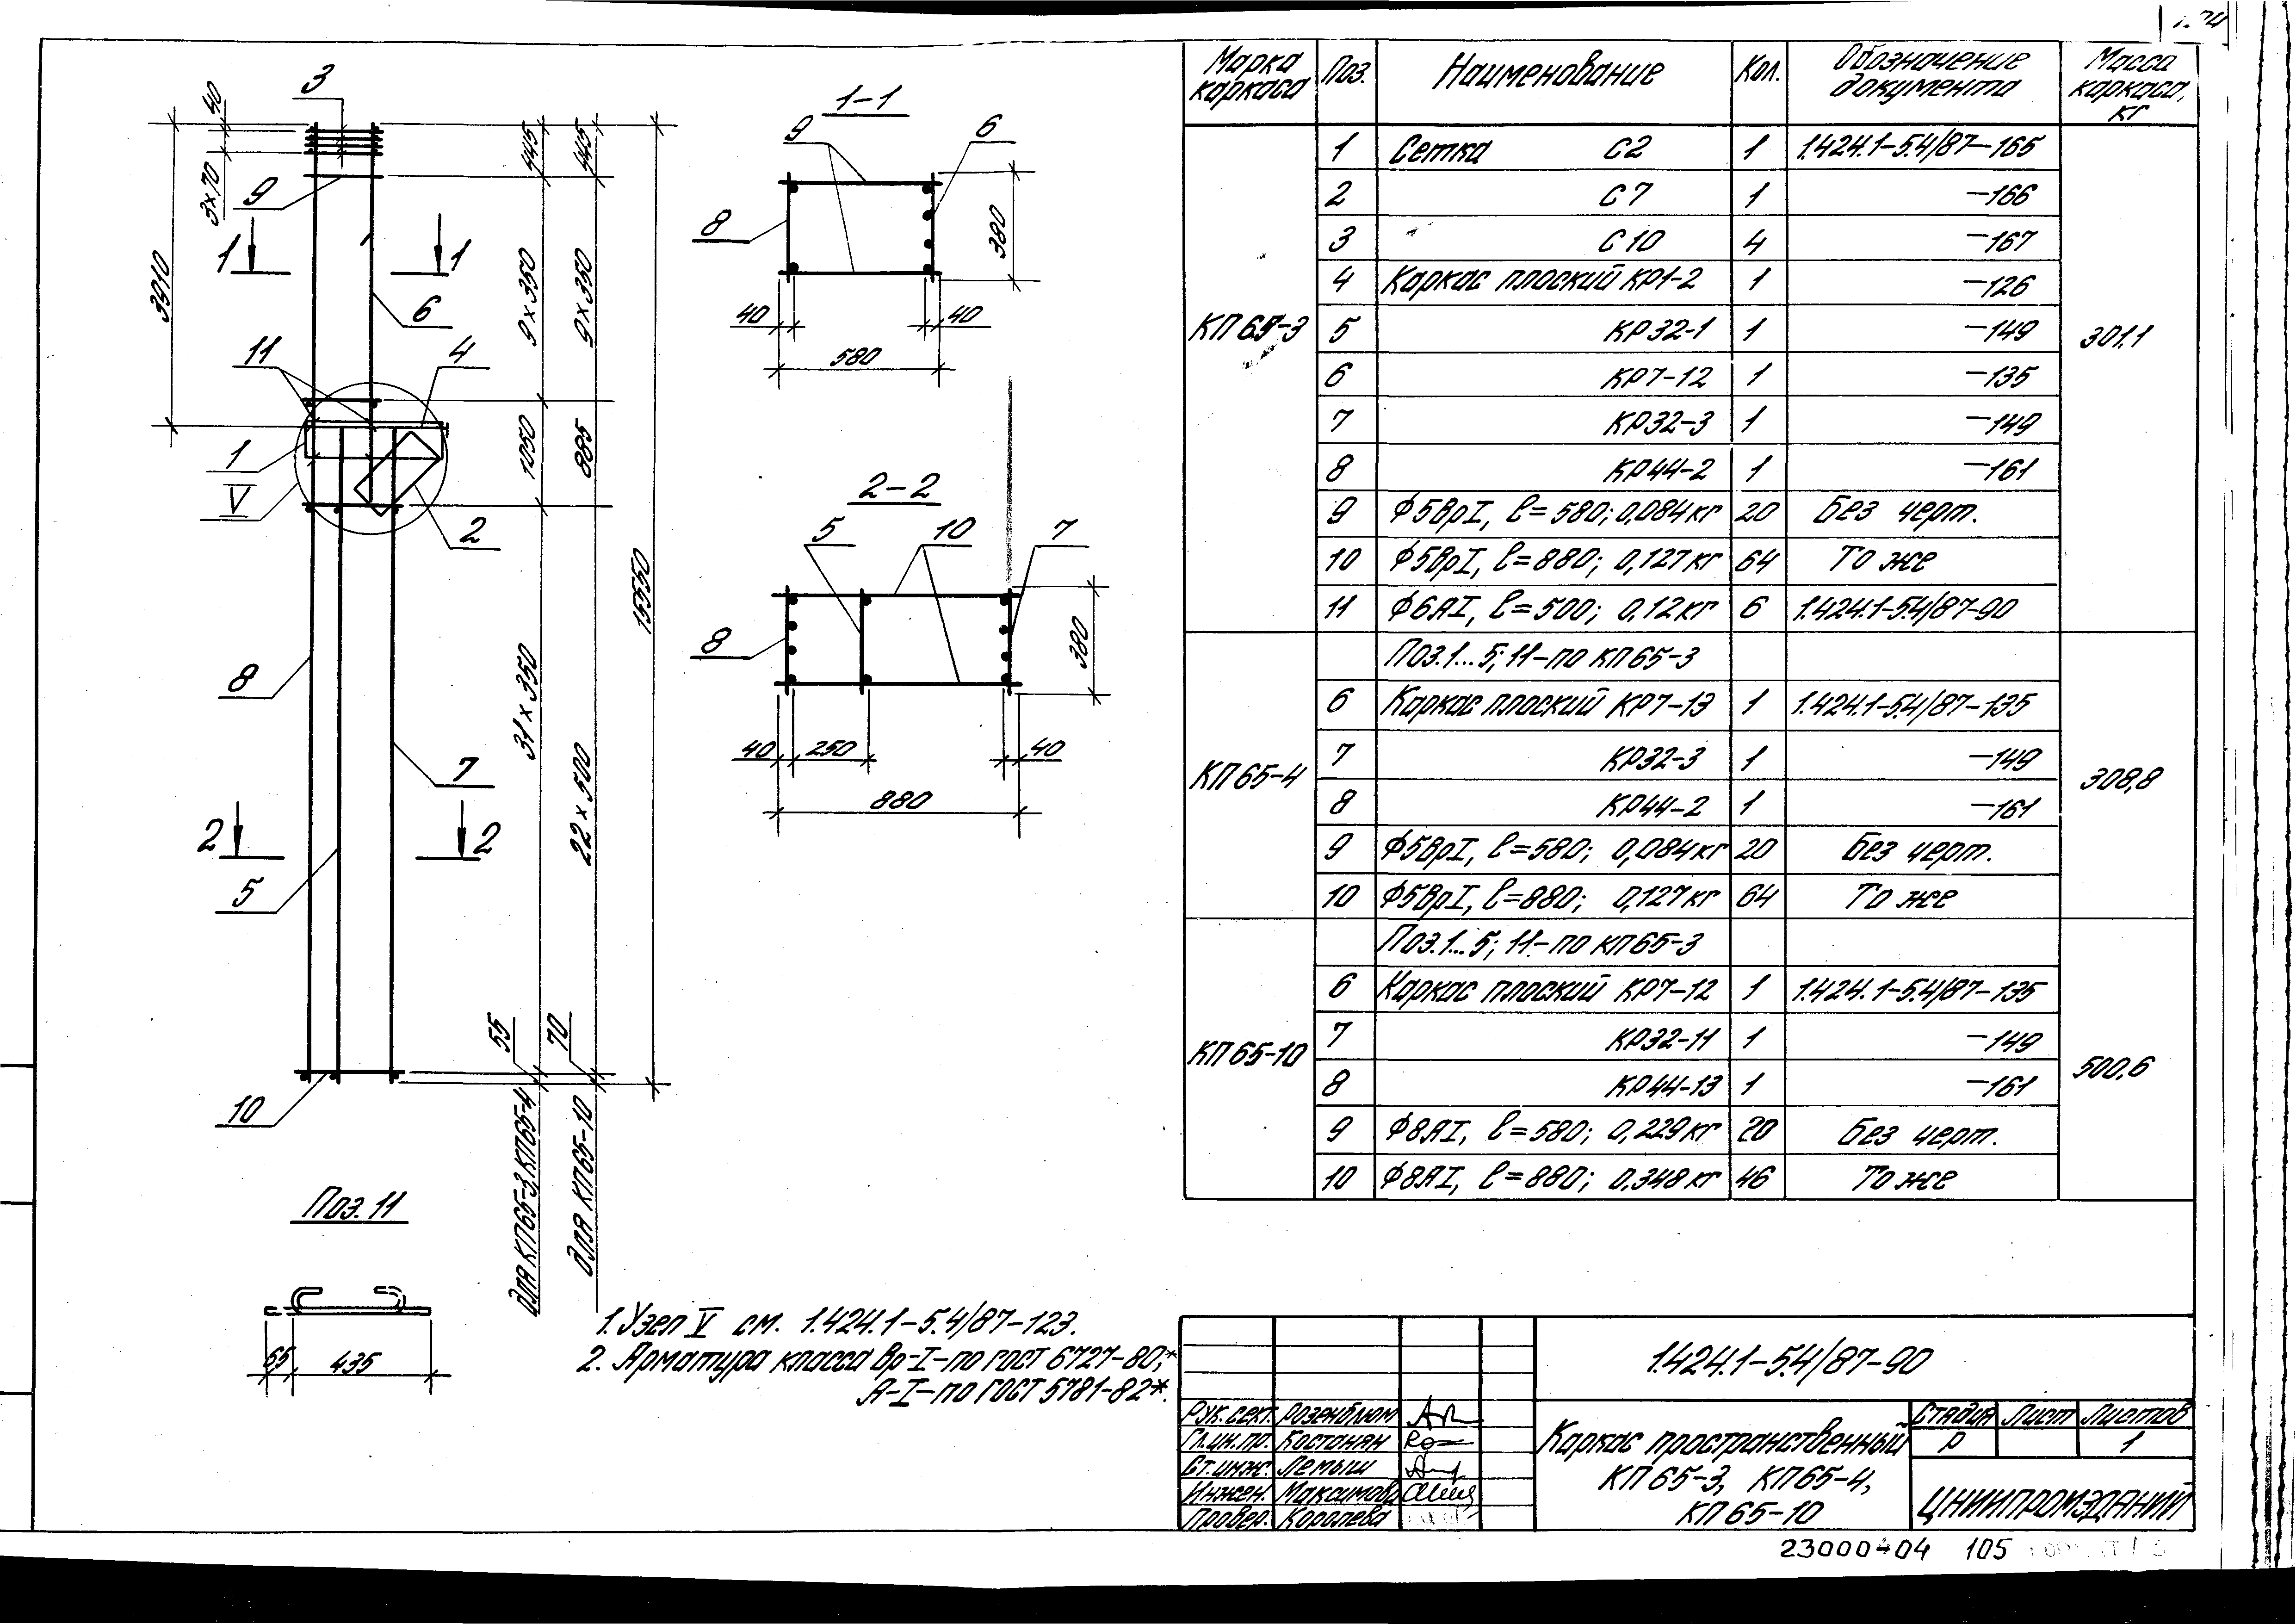 3
40
3×70
9
1 1
3910
6
11
4
1
V
2
445
445
9×350
9×350
1050
885
31×350
22×500
15550
8
7
2 2
5
10
55
70
для КП65-3, КП65-4
для КП65-10
1-1
9
6
8
380
40
40
580
2-2
5
10
7
8
380
40
250
40
880
Поз. 11
65
435
1. Узел V см. 1.424.1-5.4/87-123.
2. Арматура класса Вр-I-по ГОСТ 6727-80;*
А-I-по ГОСТ 5781-82*.
Марка каркаса Поз. Наименование Кол. Обозначение документа Масса каркаса, кг
КП65-3 301.1
1 Сетка С2 1 1.424.1-5.4/87-165
2 С7 1 -166
3 С10 4 -167
4 Каркас плоский КР1-2 1 -126
5 КР32-1 1 -149
6 КР7-12 1 -135
7 КР32-3 1 -149
8 КР44-2 1 -161
9 Ф5ВрI, l=580; 0,084кг 20 Без черт.
10 Ф5ВрI, l=880; 0,127кг 64 То же
11 Ф6АI, l=500; 0,12кг 6 1.424.1-5.4/87-90
КП65-4 308,8
Поз. 1...5; 11-по КП65-3
6 Каркас плоский КР7-13 1 1.424.1-5.4/87-135
7 КР32-3 1 -149
8 КР44-2 1 -161
9 Ф5ВрI, l=580; 0,084кг 20 Без черт.
10 Ф5ВрI, l=880; 0,127кг 64 То же
КП65-10 500,6
Поз. 1...5; 11-по КП65-3
6 Каркас плоский КР7-12 1 1.424.1-5.4/87-135
7 КР32-11 1 -149
8 КР44-13 1 -161
9 Ф8АI, l=580; 0,229кг 20 Без черт.
10 Ф8АI, l=880; 0,348кг 46 То же
1.424.1-5.4/87-90
Рук. сект. Розенблюм
Гл.ин.пр. Костанян
Ст.инж. Лемыш
Инжен. Максимова
Провер. Королева
Каркас пространственный
КП65-3, КП65-4,
КП65-10
Стадия Лист Листов
Р 1
ЦНИИПРОМЗДАНИЙ
23000404 105